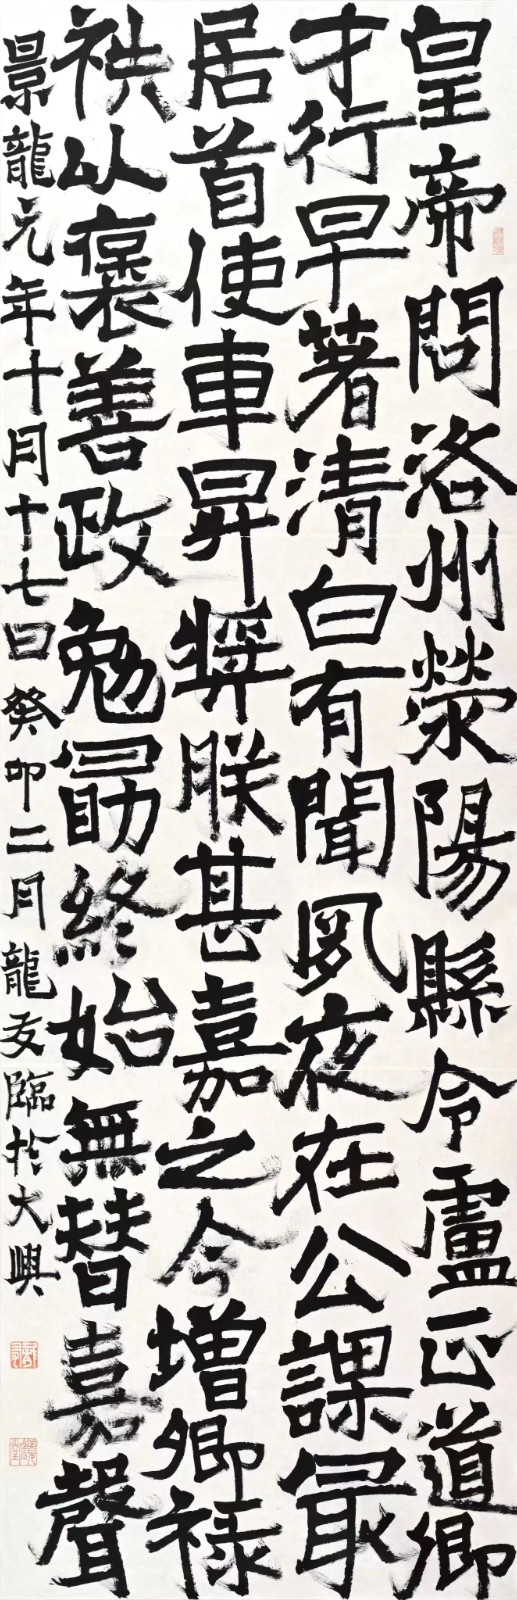 皇帝問洛州滎陽縣令盧正道卿
才行早著清白有聞夙夜在公課最
居首使車昇獎朕甚嘉之今增卿祿
袟以襃善政勉勗終始無替嘉聲
景龍元年十月十七日 癸卯二月龍友臨於大興